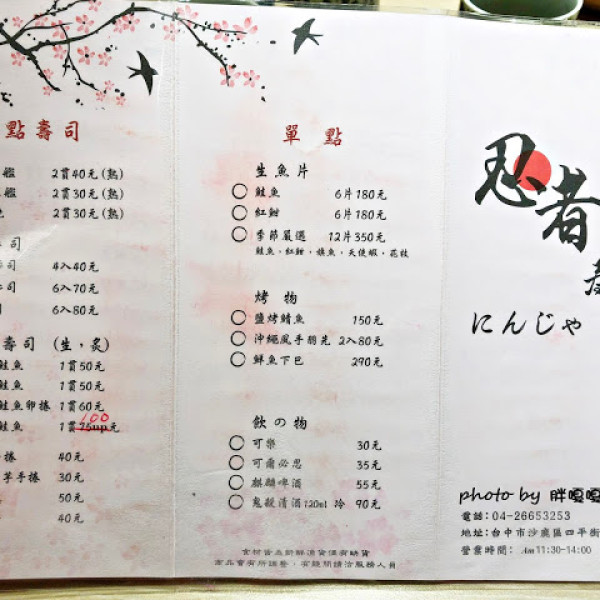 點壽司
艦 2貫40元(熟)
艦 2貫30元(熟)
2貫30元(熟)
司
司 4入40元
司 6入70元
司 6入80元
壽司 (生,炙)
鮭魚 1貫50元
鮭魚 1貫50元
鮭魚卵捲 1貫60元
100
鮭魚 1貫75up元
捲 40元
芋手捲 30元
50元
40元
單 點
生魚片
鮭魚 6片180元
紅魽 6片180元
季節嚴選 12片350元
鮭魚,紅魽,旗魚,天使蝦,花枝
烤 物
鹽烤鯖魚 150元
沖繩風手羽先 2入80元
鮮魚下巴 290元
飲の物
可樂 30元
可爾必思 35元
麒麟啤酒 55元
鬼殺清酒120ml 冷 90元
食材皆為新鮮漁貨偶有缺貨
商品會有所調整,有疑問請洽服務人員
忍者
にんじゃ
photo by 胖嘎嘎
電話:04-26653253
地址:台中市沙鹿區四平街
營業時間: Am11:30-14:00